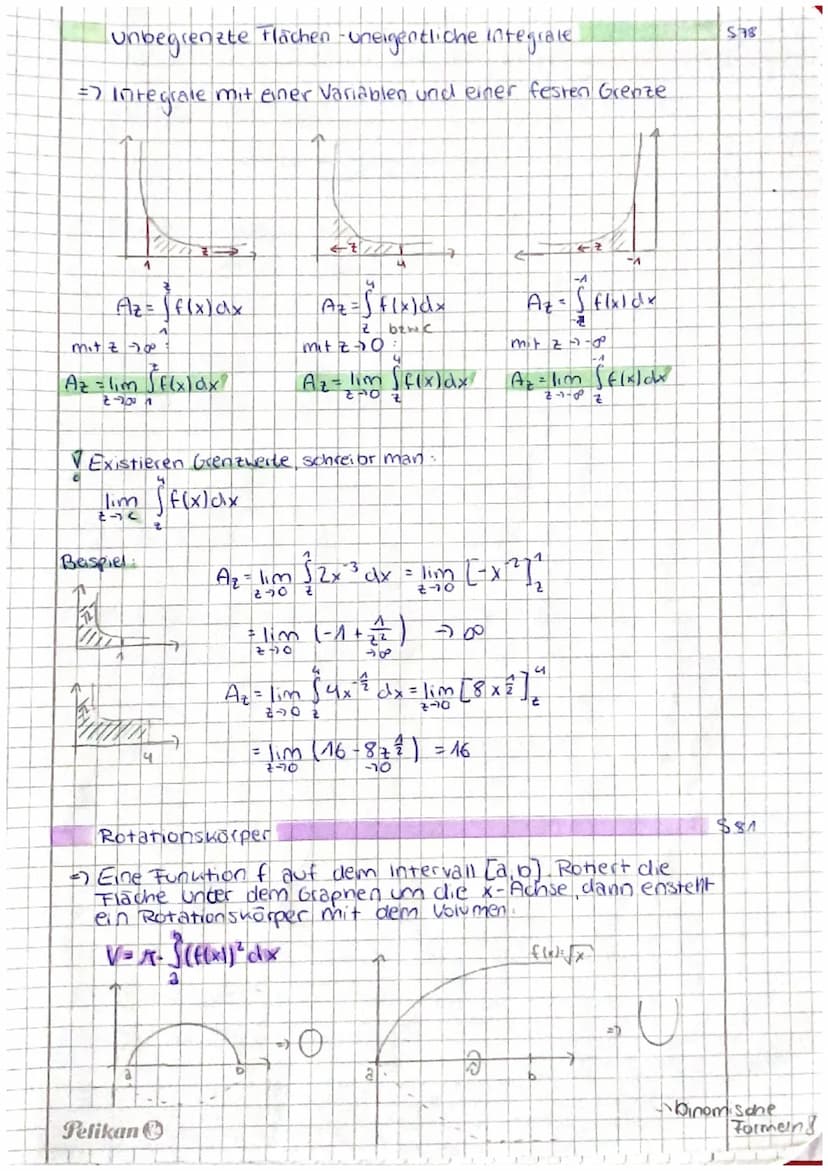 unbegrenzte Flächen - uneigentliche Integrale S78
=> Integrale mit einer Variablen und einer festen Grenze
1 z
z 4
z -1
A_z = ∫_1^z f(x)dx A_z = ∫_z^4 f(x)dx A_z = ∫_-z^-1 f(x)dx
mit z → ∞ : mit z → 0 : bzw c mit z → -∞
A_z = lim_{z→∞} ∫_1^z f(x)dx A_z = lim_{z→0} ∫_z^4 f(x)dx A_z = lim_{z→-∞} ∫_z^-1 f(x)dx
! Existieren Grenzwerte, schreibt man:
lim_{z→c} ∫_z^4 f(x)dx
Beispiel:
A_z = lim_{z→0} ∫_z^1 2x^-3 dx = lim_{z→0} [-x^-2]_z^1
1
= lim_{z→0} (-1 + 1/z^2) → ∞
→∞
A_z = lim_{z→0} ∫_z^4 4x^-1/2 dx = lim_{z→0} [8x^1/2]_z^4
4
= lim_{z→0} (16 - 8z^1/2) = 16
→0
Rotationskörper S81
=> Eine Funktion f auf dem Intervall [a,b]. Rotiert die
Fläche unter dem Graphen um die x-Achse, dann ensteht
ein Rotationskörper mit dem Volumen:
V = π · ∫_a^b (f(x))^2 dx
f(x)=√x
a b => a b =>
→ binomische
Formeln!
Pelikan